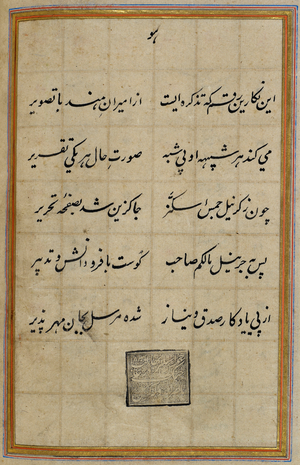 هو
این نگارین رقم که تذکره ایست از امیران هند با تصویر
می کند هر شبیه او پی شبه صورت حال هر یکی تقریر
چون ز کرنیل جمس اسکنر جاگزین شد بصفحه تحریر
پس به جرنیل مالکم صاحب کوست با فر و دانش و تدبیر
از پی یادگار صدق و نیاز شده مرسل بجان مهر پذیر